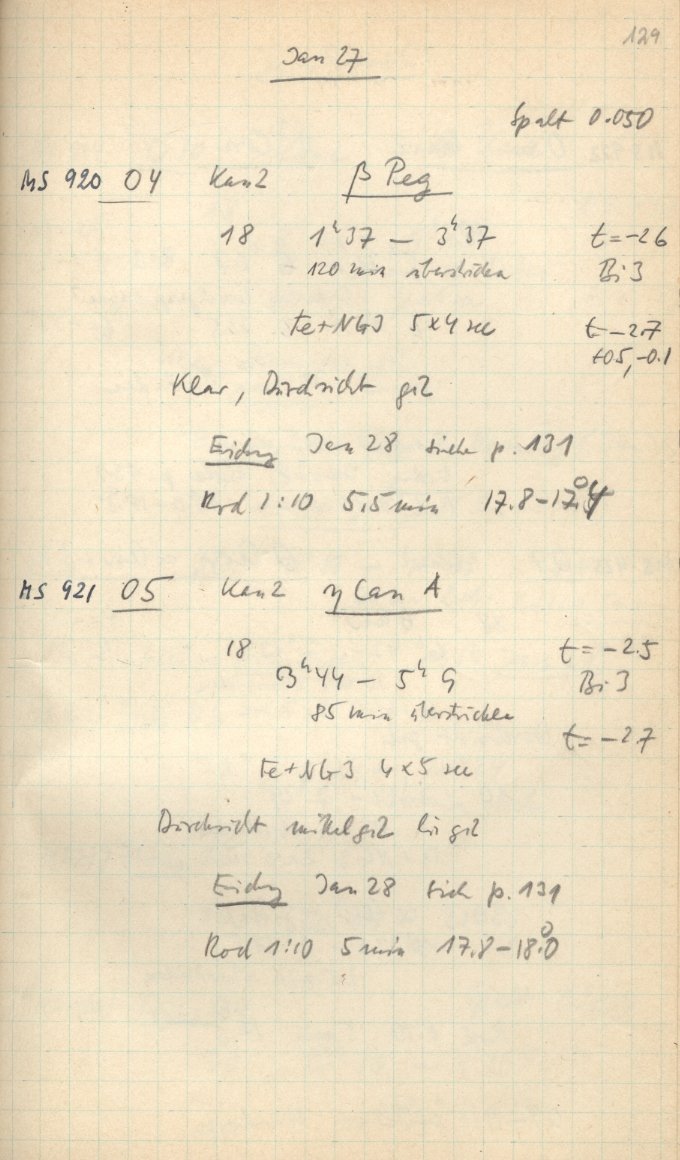 129
Jan 27
Spalt 0.050
MS 920 04 Kam2 β Peg
18 1ʰ37 – 3ʰ37 t=-2.6
120 min überstrichen Bi 3
Fe+NG3 5x4 sec t=-2.7
+0.5, -0.1
Klar, Durchsicht gut
Jan 28 siehe p. 131
Rod 1:10 5,5 min 17.8-17
MS 921 05 Kam2 η Cas A
18 t=-2.5
3ʰ44 – 5ʰ9 Bi 3
85 min überstrichen
t=-2.7
Fe+NG3 4x5 sec
Durchsicht mittelgut bis gut
Jan 28 siehe p. 131
Rod 1:10 5 min 17.8-18.0